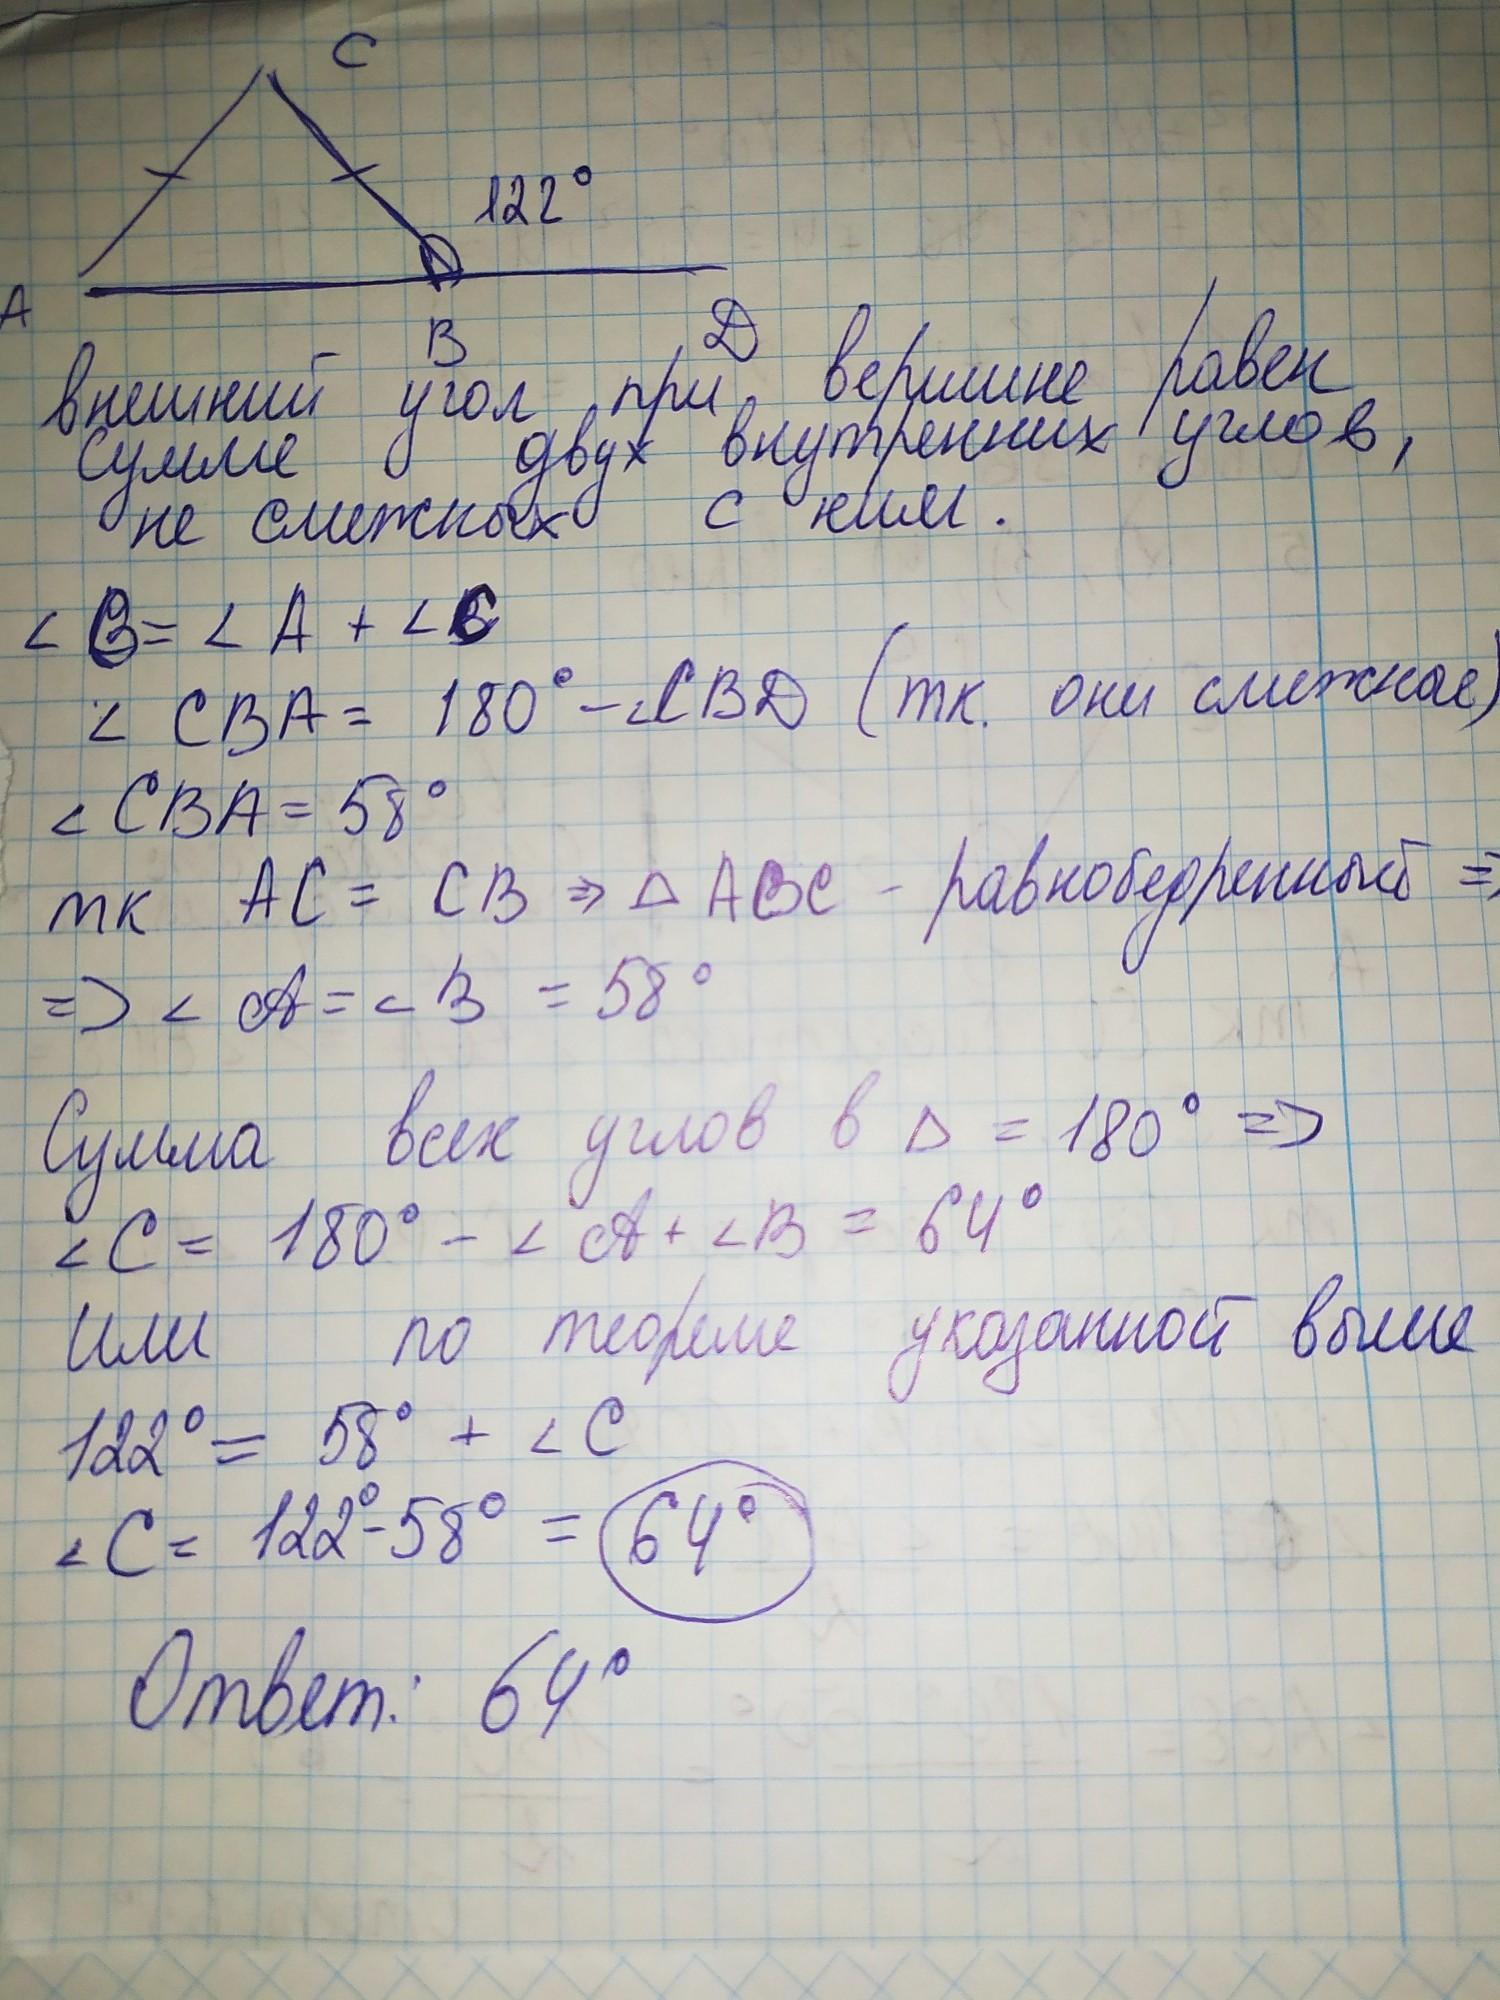 C
122°
A
B
D
внешний угол при вершине равен
сумме двух внутренних углов,
не смежных с ним.
∠ B = ∠ A + ∠ C
∠ CBA = 180° - ∠CBD (тк. они смежные)
∠ CBA = 58°
тк AC = CB => △ ABC - равнобедренный =>
=> ∠ A = ∠ B = 58°
Сумма всех углов в △ = 180° =>
∠ C = 180° - ∠ A + ∠ B = 64°
Или по теореме указанной выше
122° = 58° + ∠ C
∠ C = 122° - 58° = 64°
Ответ: 64°